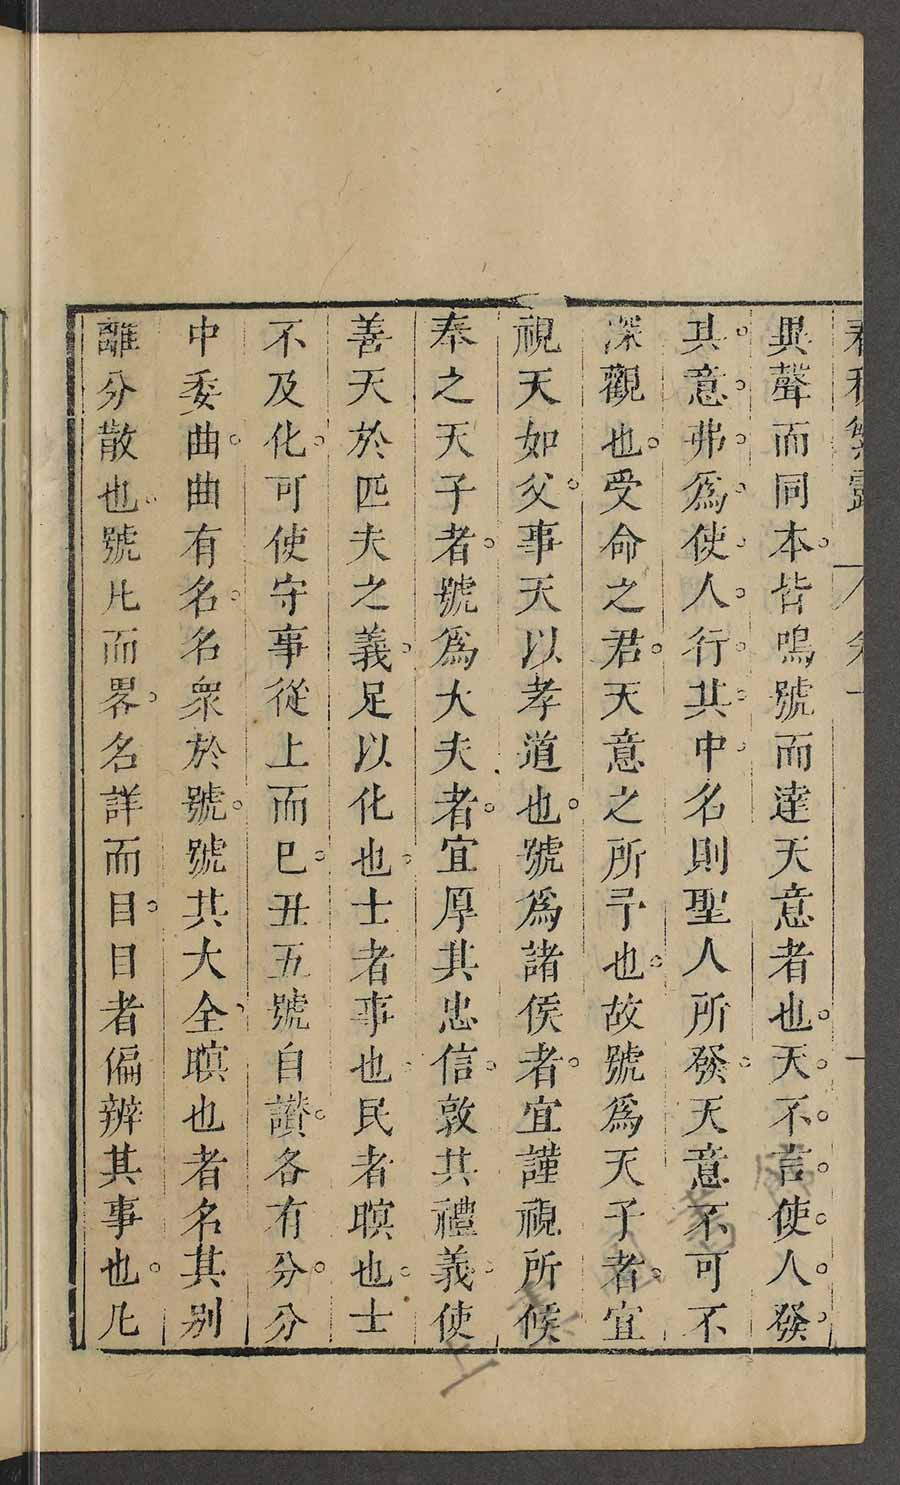 異聲而同本。皆鳴號而達天意者也。天。不。言。使。人。發。
其。意。弗。爲。使。人。行。其。中。名則聖人所發。天意不可不
深觀也。受命之君。天意之所予也。故號爲天子者。宜
視天如父。事天以孝道也。號爲諸侯者。宜謹視所候
奉之天子者。號爲大夫者。宜厚其忠信。敦其禮義。使
善天於匹夫之義。足以化也。士者事也。民者瞑也。士
不及化。可使守事從上而巳。丑五號自讃。各有分。分
中委曲。曲有名。名衆於號。號其大全。瞑也者名其别
離分散也。號凡而畧。名詳而目。目者偏辨其事也。凡